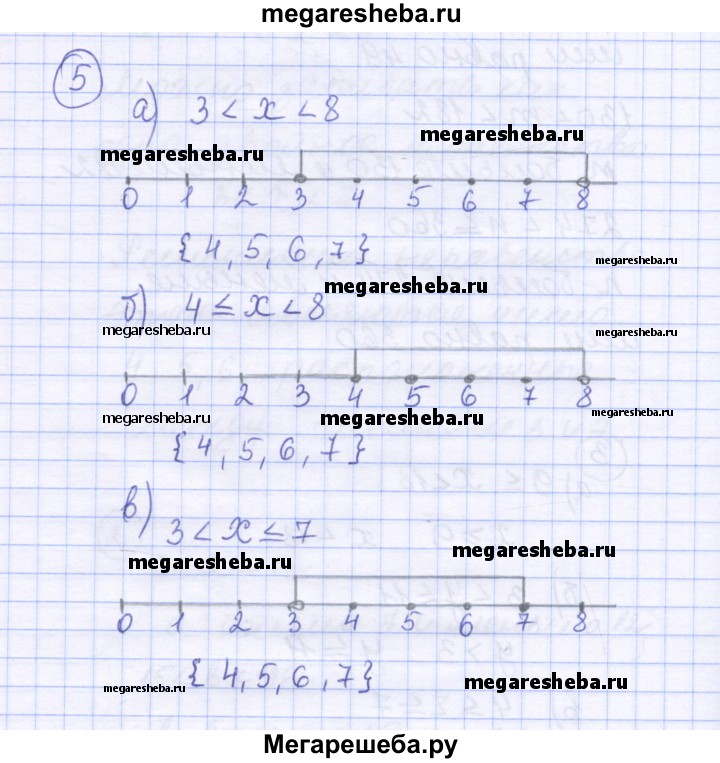 megaresheba.ru
5
а) 3 < x < 8
megaresheba.ru
megaresheba.ru
0 1 2 3 4 5 6 7 8
{4, 5, 6, 7}
megaresheba.ru
megaresheba.ru
б) 4 ≤ x < 8
megaresheba.ru
megaresheba.ru
0 1 2 3 4 5 6 7 8
megaresheba.ru
megaresheba.ru
megaresheba.ru
{4, 5, 6, 7}
в)
3 < x ≤ 7
megaresheba.ru
megaresheba.ru
0 1 2 3 4 5 6 7 8
{4, 5, 6, 7}
megaresheba.ru
megaresheba.ru
Мегарешеба.ру